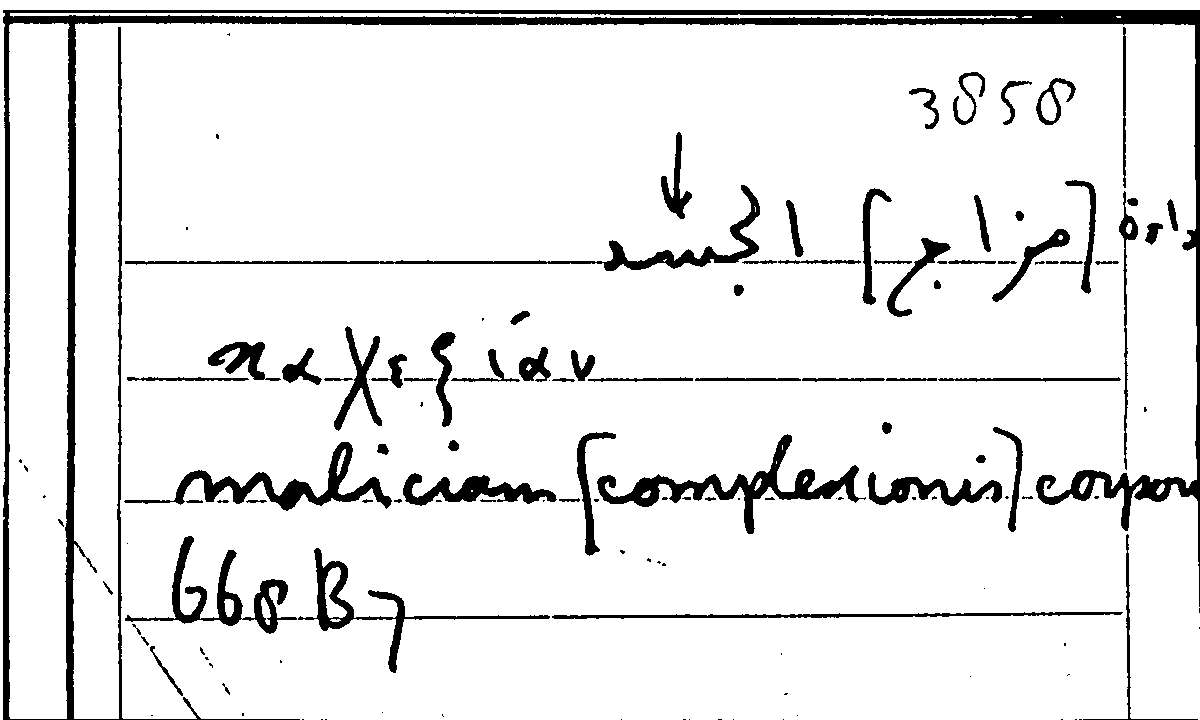 3858
↓
[مزاج] الجسد
καχεξίαν
maliciam [complexionis] corpor
668 B 7